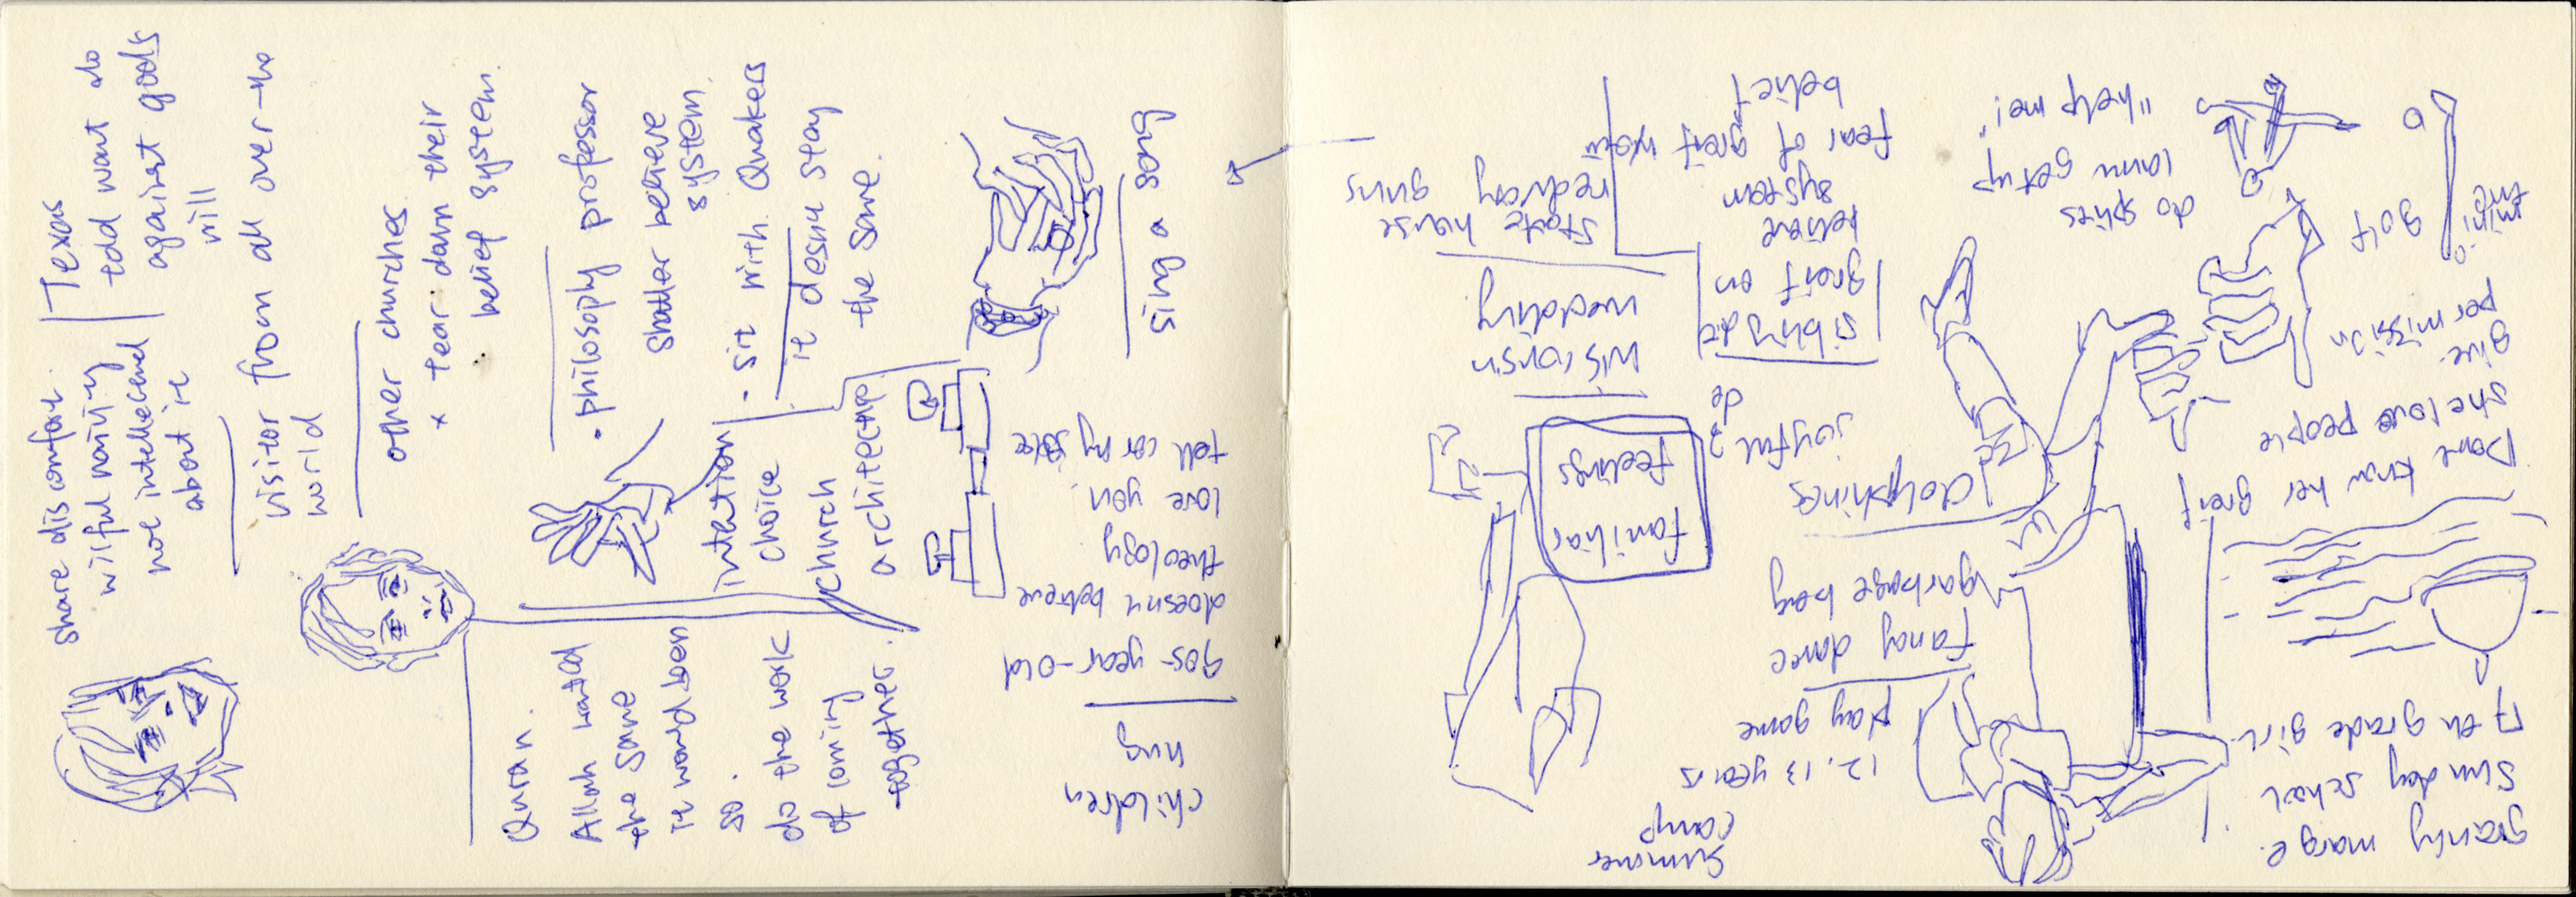 share discomfort.
wilful naivity
not intellectual
about it
Texas
todd want do
against gods
will
visitor from all over the
world
other churches
x tear down their
belief system.
• philosophy professor
shatter believe
system.
• sit with Quakers
it doesnt stay
the same.
intention
choice
church
architecture
Quran.
Allah wanted
the same
it would been
so.
do the work
of coming
together.
sing a song
children
hug
90s-year-old
doesnt believe
theology
love you.
tell corny joke
granny marge.
sunday school
7th grade girl.
Dont know her
grief
she love people
give
permission
mini
golf
do splits
cant get up
"help me!"
summer
camp
12. 13 years
play game
fancy dance
garbage bag
dolphins
joyful?
familiar
feelings
wisconsin
wedding
state house
guns
sibling die
grief on
believe
system
fear of grief
belief